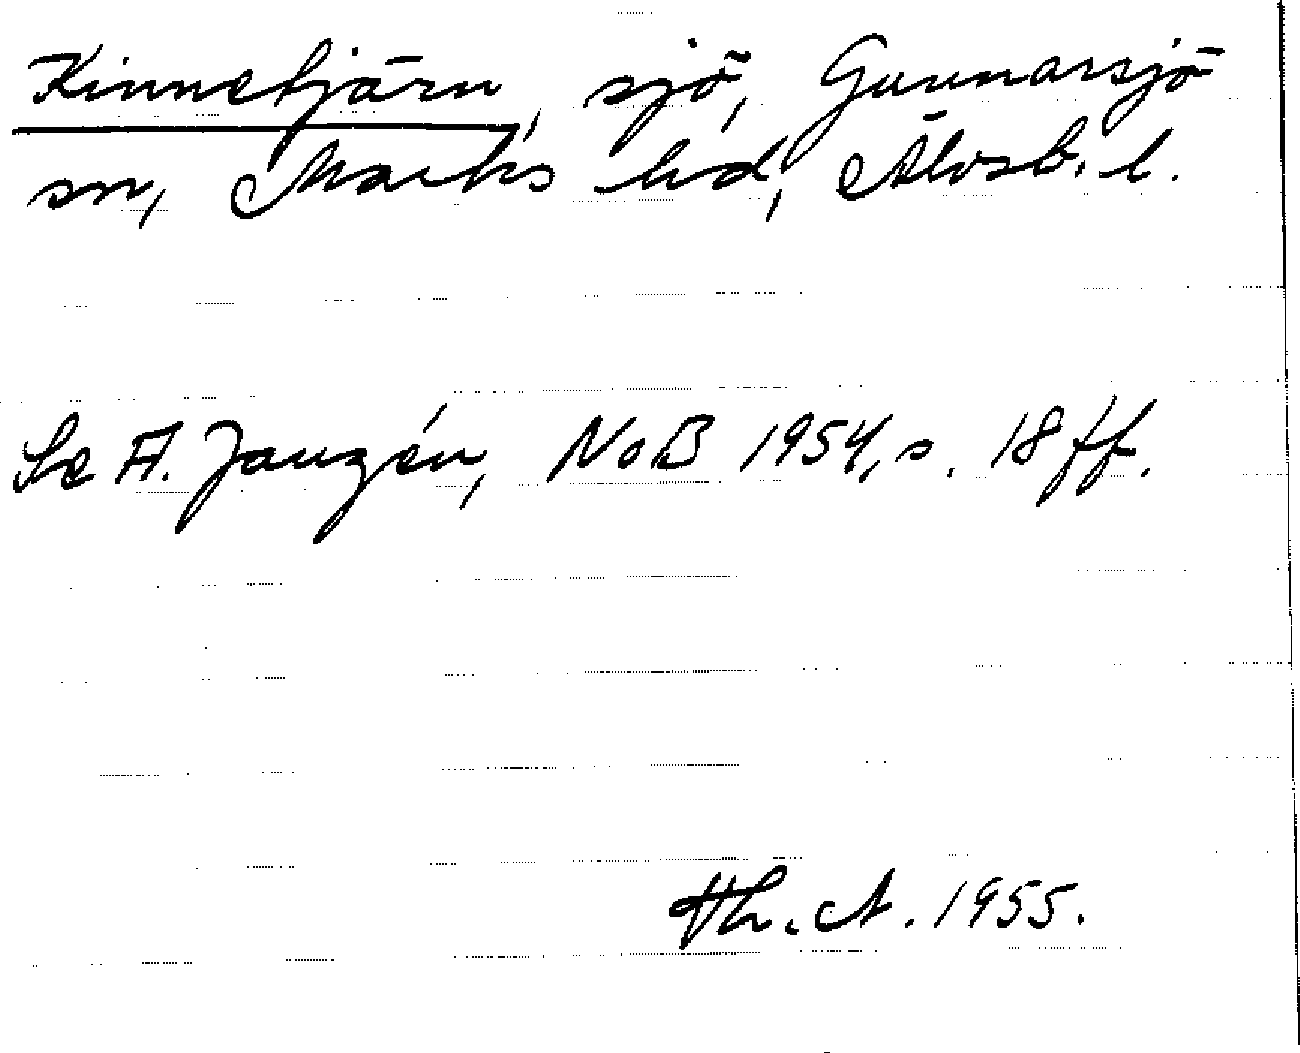 Kinnetjärn, sjö, Gunnarsjö
sn, Marks hd, Älvsb. l.
Se A. Janzén, NoB 1954, s. 18 ff.
Th. A. 1955.